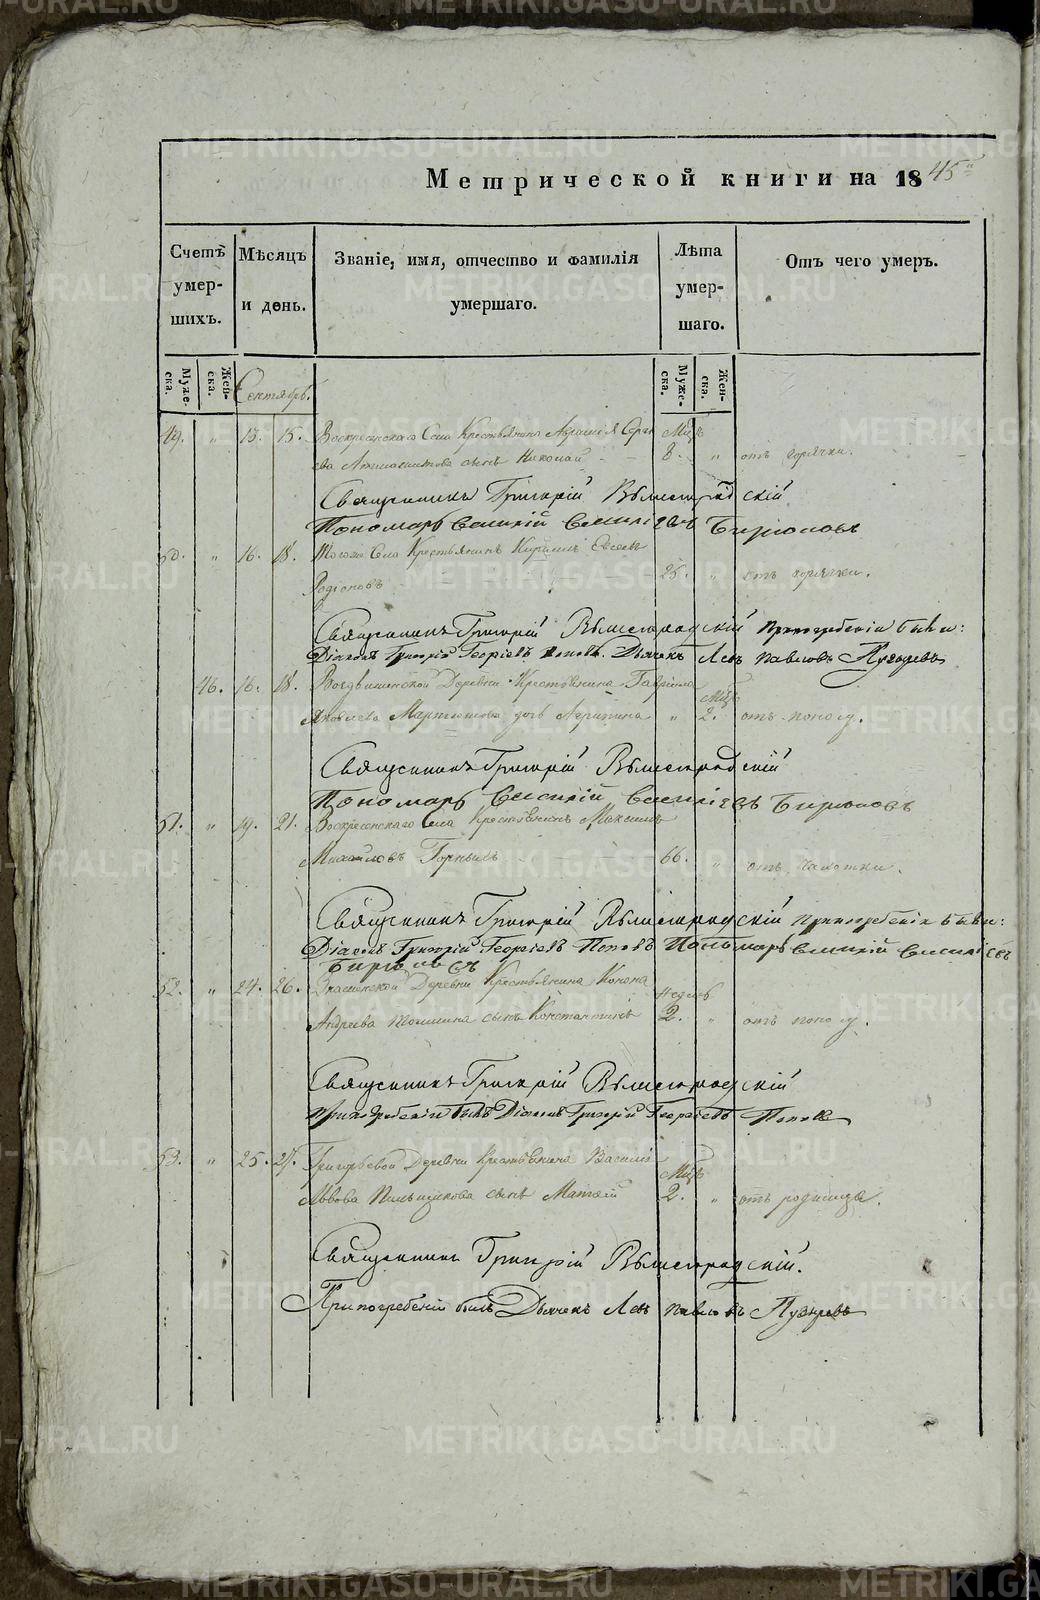 Метрической книги на 1845
Счетъ умер-шихъ.
Мѣсяцъ и день.
Званіе, имя, отчество и фамилія умершаго.
Лѣта умер-шаго.
Отъ чего умеръ.
Муже-ска.
Жен-ска.
Сентябрь.
Муже-ска.
Жен-ска.
49. " 13. 15. Воскресенскаго Села Крестьянина Мѣс
сынъ Николай 8. " отъ горячки.
Священникъ Григорій Вышегородскій
Пономарь Василій Бирюковъ
50. " 16. 18. Тогоже Села Крестьянинъ Кирилъ Евсеевъ
Родіоновъ 25. " отъ горячки.
Священникъ Григорій Вышегородскій При погребеніи были:
Діаконъ Григорій Георгіевъ Поповъ Дьячекъ Левъ Павловъ Пузыревъ
46. 16. 18. Воздвиженской Деревни Крестьянина Гаврила Мѣс
Яковлева дочь Агрипина " 2. отъ поносу.
Священникъ Григорій Вышегородскій
Пономарь Василій Бирюковъ
51. " 19. 21. Воскресенскаго Села Крестьянинъ Максимъ
Михайловъ 66. " отъ чахотки.
Священникъ Григорій Вышегородскій При погребеніи были:
Діаконъ Григорій Георгіевъ Поповъ Пономарь Василій
52. " 24. 26. Знаменской Деревни Крестьянина Конона недѣль
Андреева сынъ Константинъ 2. " отъ поносу.
Священникъ Григорій Вышегородскій
При погребеніи былъ Діаконъ Григорій Георгіевъ Поповъ
53. " 25. 27. Григорьевой Деревни Крестьянина Василія Мѣс
Львова Пильщикова сынъ Матвей 2. " отъ родимца.
Священникъ Григорій Вышегородскій.
При погребеніи былъ Дьячекъ Левъ Павловъ Пузыревъ
METRIKI.GASO-URAL.RU